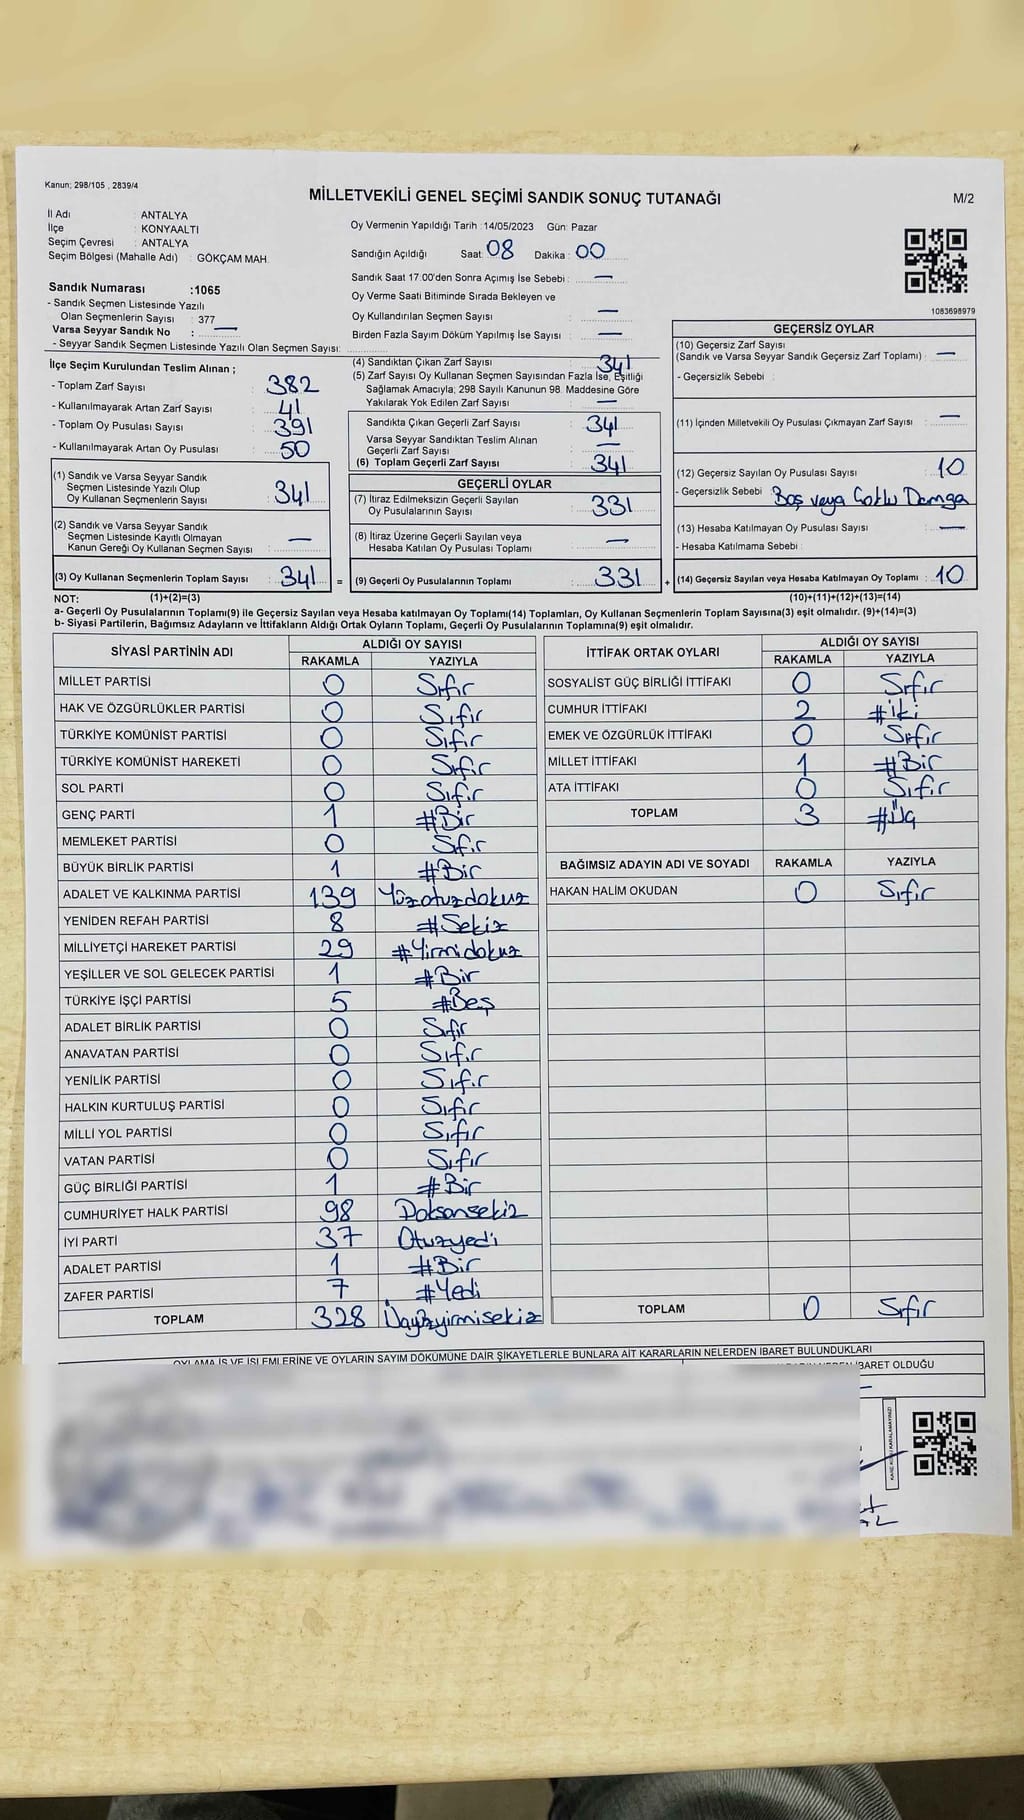 Kanun; 298/105 , 2839/4
MİLLETVEKİLİ GENEL SEÇİMİ SANDIK SONUÇ TUTANAĞI
M/2
İl Adı : ANTALYA
İlçe : KONYAALTI
Seçim Çevresi : ANTALYA
Seçim Bölgesi (Mahalle Adı) : GÖKÇAM MAH.
Sandık Numarası :1065
- Sandık Seçmen Listesinde Yazılı
Olan Seçmenlerin Sayısı : 377
Varsa Seyyar Sandık No : —
- Seyyar Sandık Seçmen Listesinde Yazılı Olan Seçmen Sayısı:
Oy Vermenin Yapıldığı Tarih : 14/05/2023 Gün: Pazar
Sandığın Açıldığı Saat: 08 Dakika : 00
Sandık Saat 17:00'den Sonra Açımış İse Sebebi : —
Oy Verme Saati Bitiminde Sırada Bekleyen ve
Oy Kullandırılan Seçmen Sayısı : —
Birden Fazla Sayım Döküm Yapılmış İse Sayısı : —
1083698979
İlçe Seçim Kurulundan Teslim Alınan ;
- Toplam Zarf Sayısı : 382
- Kullanılmayarak Artan Zarf Sayısı : 41
- Toplam Oy Pusulası Sayısı : 391
- Kullanılmayarak Artan Oy Pusulası : 50
(1) Sandık ve Varsa Seyyar Sandık
Seçmen Listesinde Yazılı Olup
Oy Kullanan Seçmenlerin Sayısı : 341
(2) Sandık ve Varsa Seyyar Sandık
Seçmen Listesinde Kayıtlı Olmayan
Kanun Gereği Oy Kullanan Seçmen Sayısı : —
(3) Oy Kullanan Seçmenlerin Toplam Sayısı : 341 =
(4) Sandıktan Çıkan Zarf Sayısı : 341
(5) Zarf Sayısı Oy Kullanan Seçmen Sayısından Fazla İse, Eşitliği
Sağlamak Amacıyla; 298 Sayılı Kanunun 98. Maddesine Göre
Yakılarak Yok Edilen Zarf Sayısı : —
Sandıkta Çıkan Geçerli Zarf Sayısı : 341
Varsa Seyyar Sandıktan Teslim Alınan
Geçerli Zarf Sayısı : —
(6) Toplam Geçerli Zarf Sayısı : 341
GEÇERLİ OYLAR
(7) İtiraz Edilmeksizin Geçerli Sayılan
Oy Pusulalarının Sayısı : 331
(8) İtiraz Üzerine Geçerli Sayılan veya
Hesaba Katılan Oy Pusulası Toplamı : —
(9) Geçerli Oy Pusulalarının Toplamı : 331 +
GEÇERSİZ OYLAR
(10) Geçersiz Zarf Sayısı
(Sandık ve Varsa Seyyar Sandık Geçersiz Zarf Toplamı) : —
- Geçersizlik Sebebi :
(11) İçinden Milletvekili Oy Pusulası Çıkmayan Zarf Sayısı : —
(12) Geçersiz Sayılan Oy Pusulası Sayısı : 10
- Geçersizlik Sebebi : Boş veya Çoklu Damga
(13) Hesaba Katılmayan Oy Pusulası Sayısı : —
- Hesaba Katılmama Sebebi :
(14) Geçersiz Sayılan veya Hesaba Katılmayan Oy Toplamı : 10
NOT: (1)+(2)=(3) (10)+(11)+(12)+(13)=(14)
a- Geçerli Oy Pusulalarının Toplamı(9) ile Geçersiz Sayılan veya Hesaba katılmayan Oy Toplamı(14) Toplamları, Oy Kullanan Seçmenlerin Toplam Sayısına(3) eşit olmalıdır. (9)+(14)=(3)
b- Siyasi Partilerin, Bağımsız Adayların ve İttifakların Aldığı Ortak Oyların Toplamı, Geçerli Oy Pusulalarının Toplamına(9) eşit olmalıdır.
SİYASİ PARTİNİN ADI ALDIĞI OY SAYISI
RAKAMLA YAZIYLA
MİLLET PARTİSİ 0 Sıfır
HAK VE ÖZGÜRLÜKLER PARTİSİ 0 Sıfır
TÜRKİYE KOMÜNİST PARTİSİ 0 Sıfır
TÜRKİYE KOMÜNİST HAREKETİ 0 Sıfır
SOL PARTİ 0 Sıfır
GENÇ PARTİ 1 #Bir
MEMLEKET PARTİSİ 0 Sıfır
BÜYÜK BİRLİK PARTİSİ 1 #Bir
ADALET VE KALKINMA PARTİSİ 139 Yüzotuzdokuz
YENİDEN REFAH PARTİSİ 8 #Sekiz
MİLLİYETÇİ HAREKET PARTİSİ 29 #Yirmidokuz
YEŞİLLER VE SOL GELECEK PARTİSİ 1 #Bir
TÜRKİYE İŞÇİ PARTİSİ 5 #Beş
ADALET BİRLİK PARTİSİ 0 Sıfır
ANAVATAN PARTİSİ 0 Sıfır
YENİLİK PARTİSİ 0 Sıfır
HALKIN KURTULUŞ PARTİSİ 0 Sıfır
MİLLİ YOL PARTİSİ 0 Sıfır
VATAN PARTİSİ 0 Sıfır
GÜÇ BİRLİĞİ PARTİSİ 1 #Bir
CUMHURİYET HALK PARTİSİ 98 Doksansekiz
İYİ PARTİ 37 Otuzyedi
ADALET PARTİSİ 1 #Bir
ZAFER PARTİSİ 7 #Yedi
TOPLAM 328 Üçyüzyirmisekiz
İTTİFAK ORTAK OYLARI ALDIĞI OY SAYISI
RAKAMLA YAZIYLA
SOSYALİST GÜÇ BİRLİĞİ İTTİFAKI 0 Sıfır
CUMHUR İTTİFAKI 2 #iki
EMEK VE ÖZGÜRLÜK İTTİFAKI 0 Sıfır
MİLLET İTTİFAKI 1 #Bir
ATA İTTİFAKI 0 Sıfır
TOPLAM 3 #Üç
BAĞIMSIZ ADAYIN ADI VE SOYADI RAKAMLA YAZIYLA
HAKAN HALİM OKUDAN 0 Sıfır
TOPLAM 0 Sıfır
OYLAMA İŞ VE İŞLEMLERİNE VE OYLARIN SAYIM DÖKÜMÜNE DAİR ŞİKAYETLERLE BUNLARA AİT KARARLARIN NELERDEN İBARET BULUNDUKLARI
İBARET OLDUĞU
—